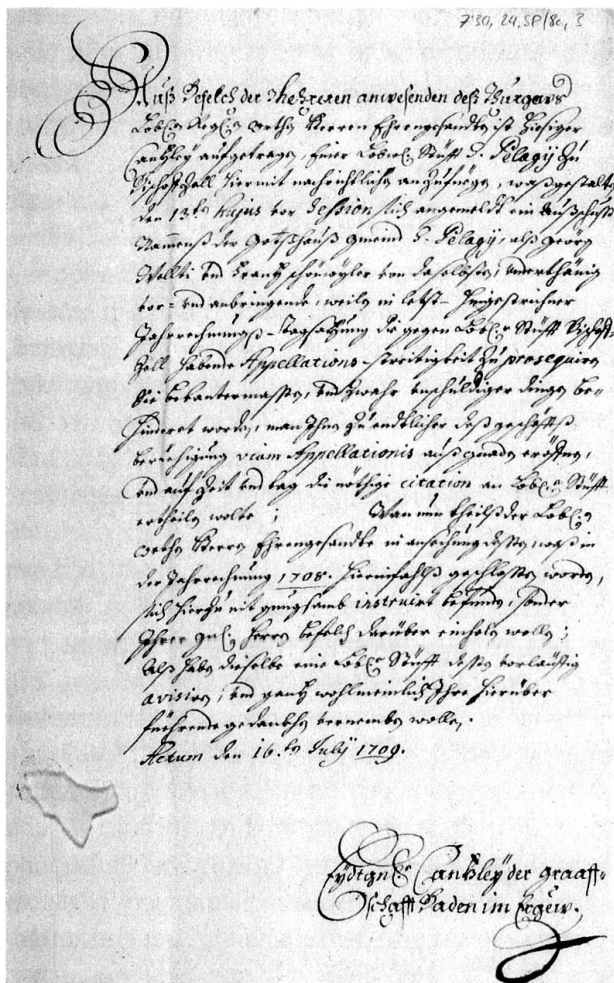 7'30, 24, SP/8c, 3
Auß Befelch der Jhehreren anwesenden deß Thurgöws
Lobl. Reg. Orthen Herren Ehrengesandten ist hiesiger
Cantzley aufgetragen, Einer Lobwl. Stüfft S. Pelagÿ zu
Bischoffzell hiermit nachrichtlichen anzufüegen, waßgestalten
den 13.ten hujus vor Session sich angemeldt ein Außschuß
Nammenß der Gottshauß gmeind S. Pelagÿ, alß Georg
und Frantz von daselbsten, underthänig
vor- und anbringende, weilen in letst-
Jahrrechnungs-tagsatzung die gegen Lobl.r Stüfft Bischoff-
zell habende Appellations-streitigkeit zu prosequiren
Sie bekantermassen, und zwahr unschuldiger dingen be-
hinderet worden, man Ihnen zu endtlicher deß geschäffts
beruehigung viam Appellationis auß gnaden eröffnen,
und auf Zeit und tag die nöthige citation an Lobl.e Stüfft
ertheilen wolte; Wan nun theilß der Lobl.en
Orthen Herren Ehrengesandte in ansechung dessen, waß in
der Jahrrechnung 1708. hierinfahlß geschlossen worden,
sich hierzu nit gnugsamb instruirt befinden, sonder
Ihrer gnl. Herren befelch darüber einholen wollen;
Alß haben dieselbe eine Lobl.e Stüfft dessen vorläuffig
avisiren, und gantz wohlmeinlich Ihre hierüber
füehrende gedankhen vernemben wollen.
Actum den 16.ten Julÿ 1709.
Eydtgnl. Cantzleÿ der Graaff-
schafft Baden im Ergeüw.